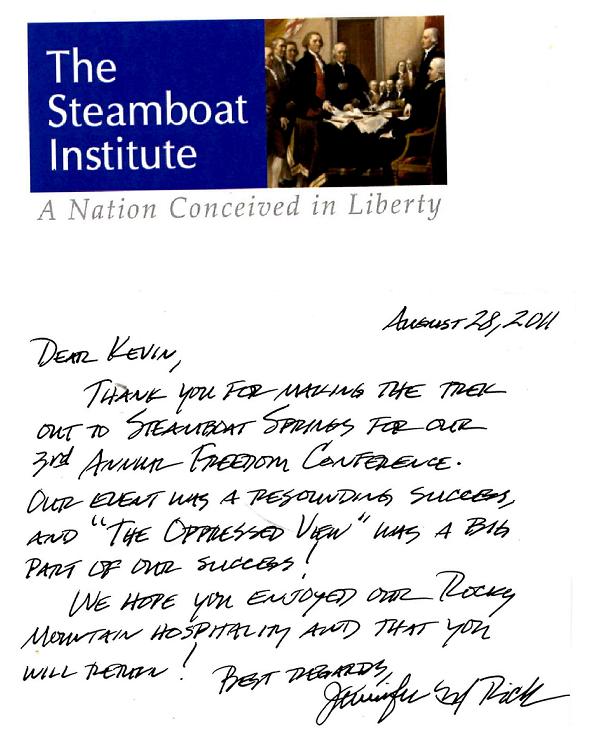 The
Steamboat
Institute
A Nation Conceived in Liberty
August 28, 2011
Dear Kevin,
Thank you for making the trek
out to Steamboat Springs for our
3rd Annual Freedom Conference.
Our event was a resounding success,
and "The Oppressed View" was a big
part of our success!
We hope you enjoyed our Rocky
Mountain hospitality and that you
will return!
Best regards,
Jennifer and Rick